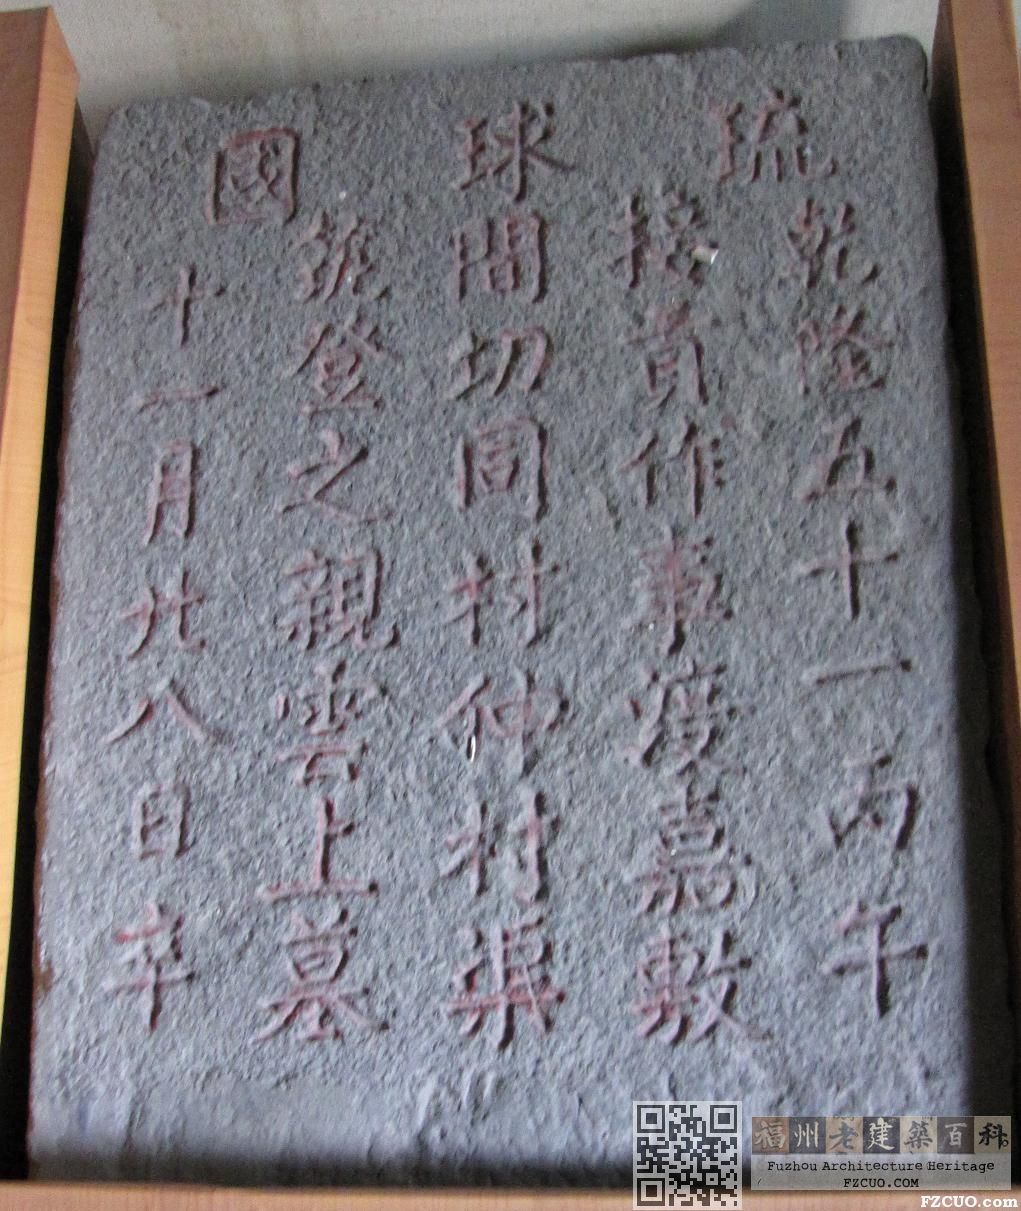 琉球國
乾隆五十一丙午
接貢作事渡嘉敷
間切同村仲村渠
筑登之親雲上墓
十一月廿八日卒
福州老建築百科
Fuzhou Architecture Heritage
FZCUO.COM
FZCUO.com